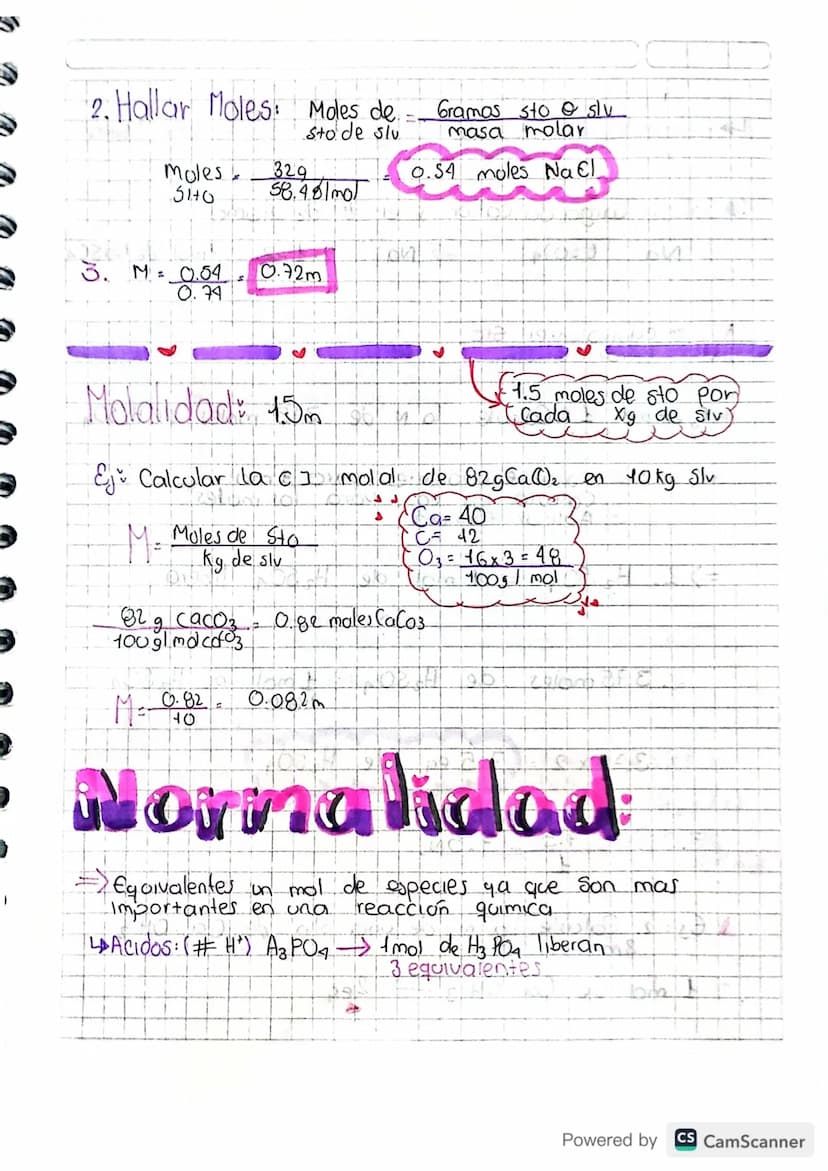 2. Hallar Moles: Moles de sto de slv = Gramos sto o slv / masa molar
Moles slto = 32g / 58.4g/mol = 0.54 moles NaCl
3. M = 0.54 / 0.74 = 0.72m
Molalidad: 1.5m
1.5 moles de sto por
Cada 1 Kg de slv
Ej: Calcular la C] molal de 82gCaCO₂ en 10kg Slv
M = Moles de Sto / Kg de slv
Ca= 40
C= 12
O₃ = 16x3 = 48
100g/mol
82 g CaCO₃ / 100g/mol CaCO₃ = 0.82 moles CaCO₃
M = 0.82 / 10 = 0.082m
Normalidad:
=> Eqoivalentes un mol de especies ya que son mas
importantes en una reacción química
↳Acidos: (# H⁺) A₃PO₄ → 1mol de H₃PO₄ liberan
3 equivalentes
Powered by CS CamScanner